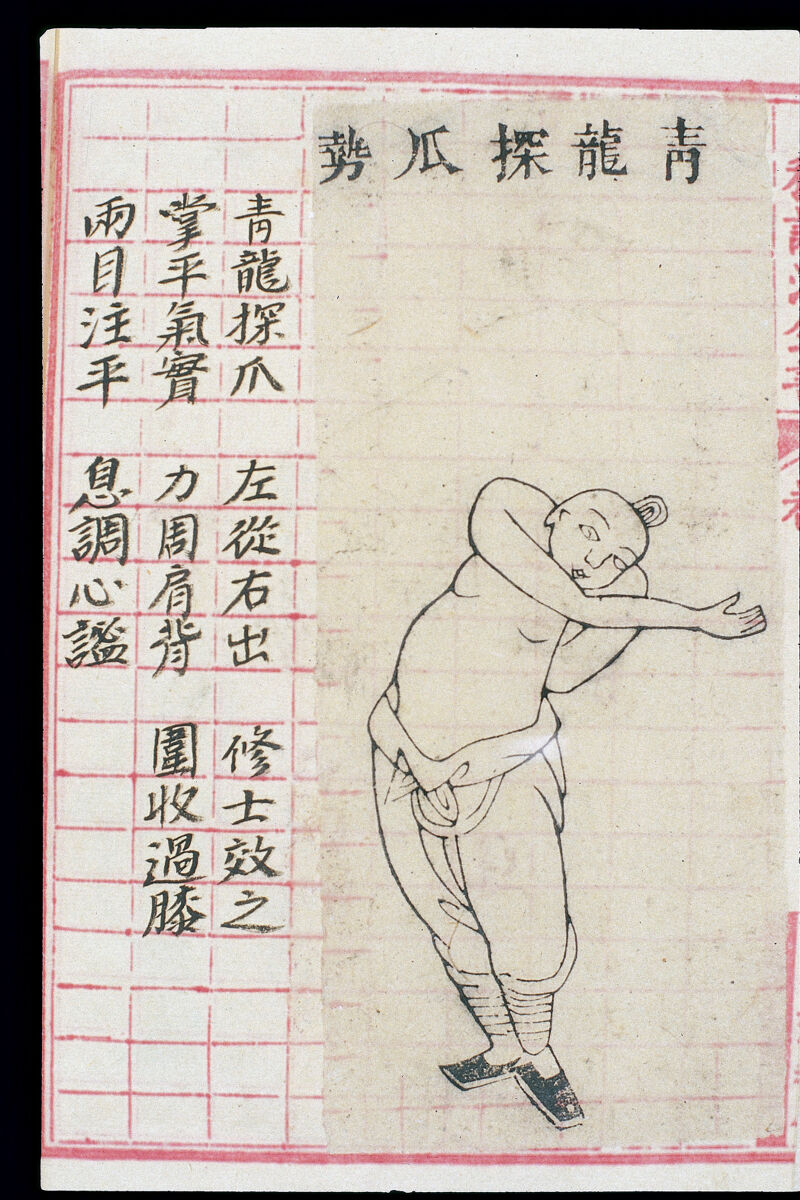 青龍探瓜勢
青龍探爪 左從右出 修士效之
掌平氣實 力周肩背 圍收過膝
兩目注平 息調心謐